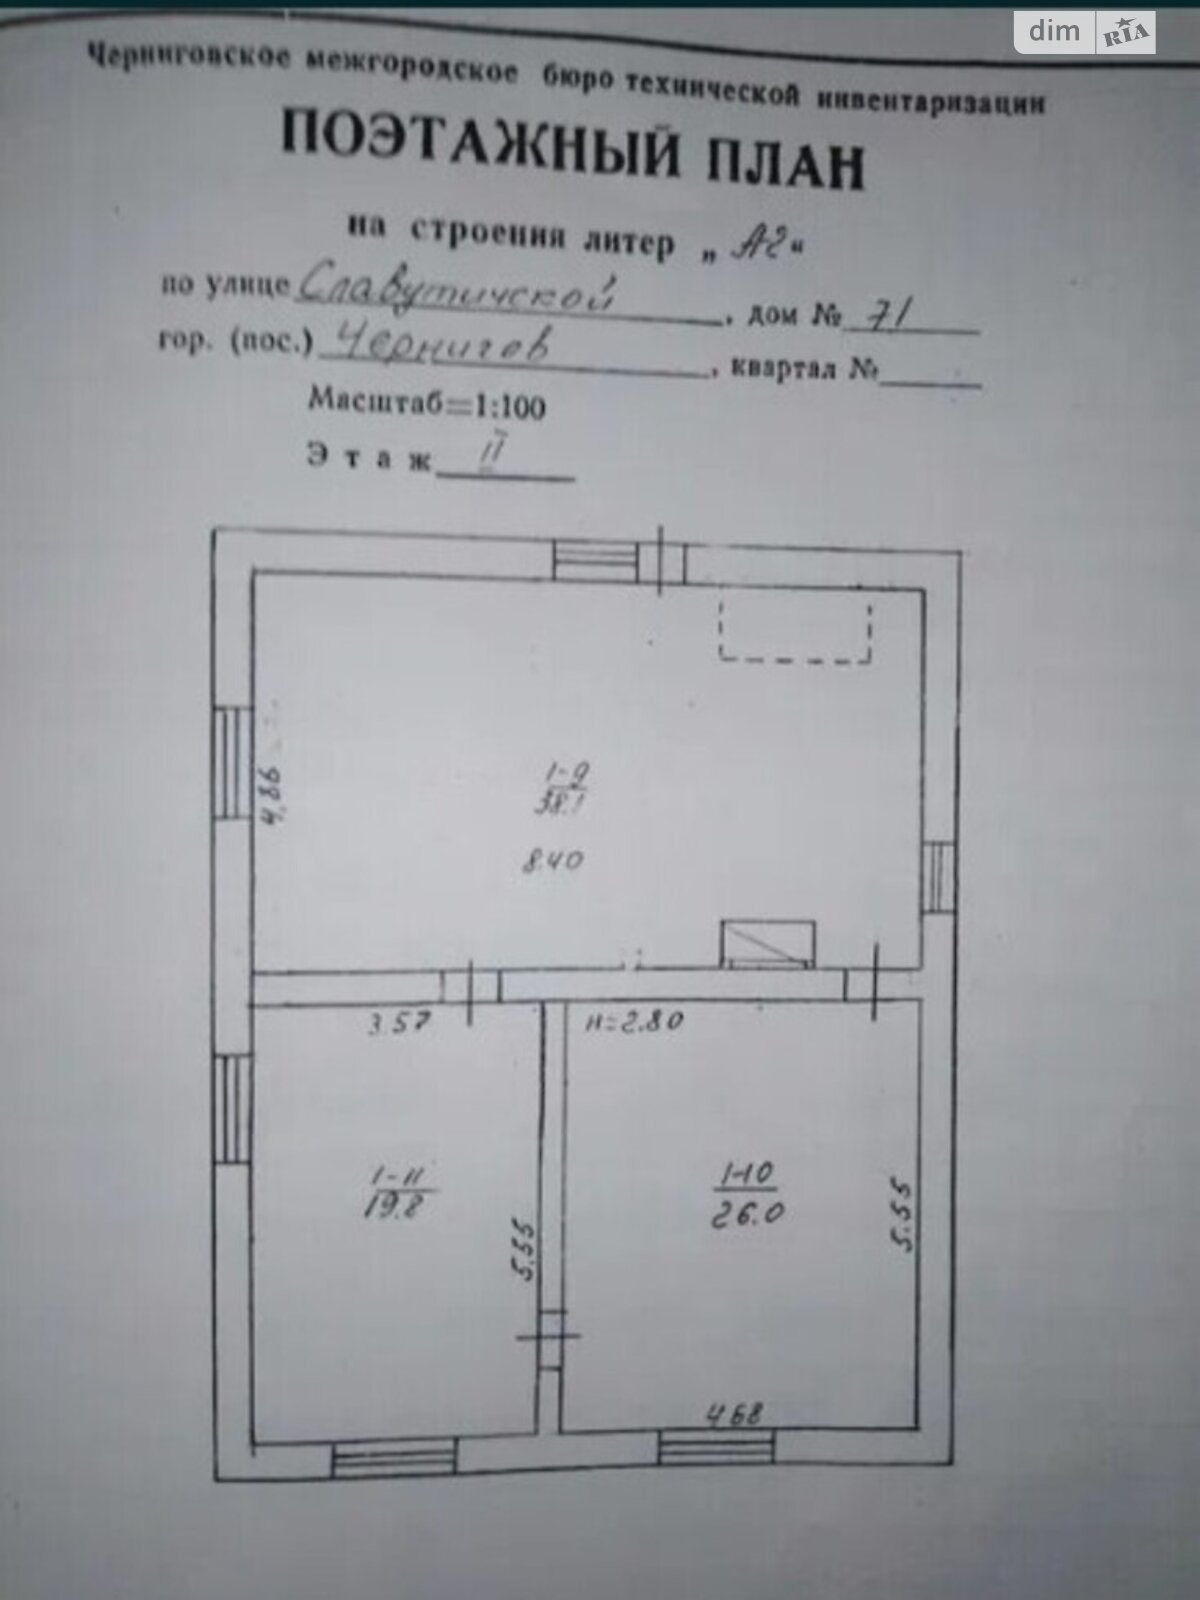 dim RIA
Черниговское межгородское бюро технической инвентаризации
ПОЭТАЖНЫЙ ПЛАН
на строения литер „ А2“
по улице Славутичской, дом № 71
гор. (пос.) Чернигов, квартал №
Масштаб=1:100
Этаж II
4.86
1-9
38.1
8.40
3.57
H=2.80
1-11
19.8
1-10
26.0
5.55
5.55
4.68